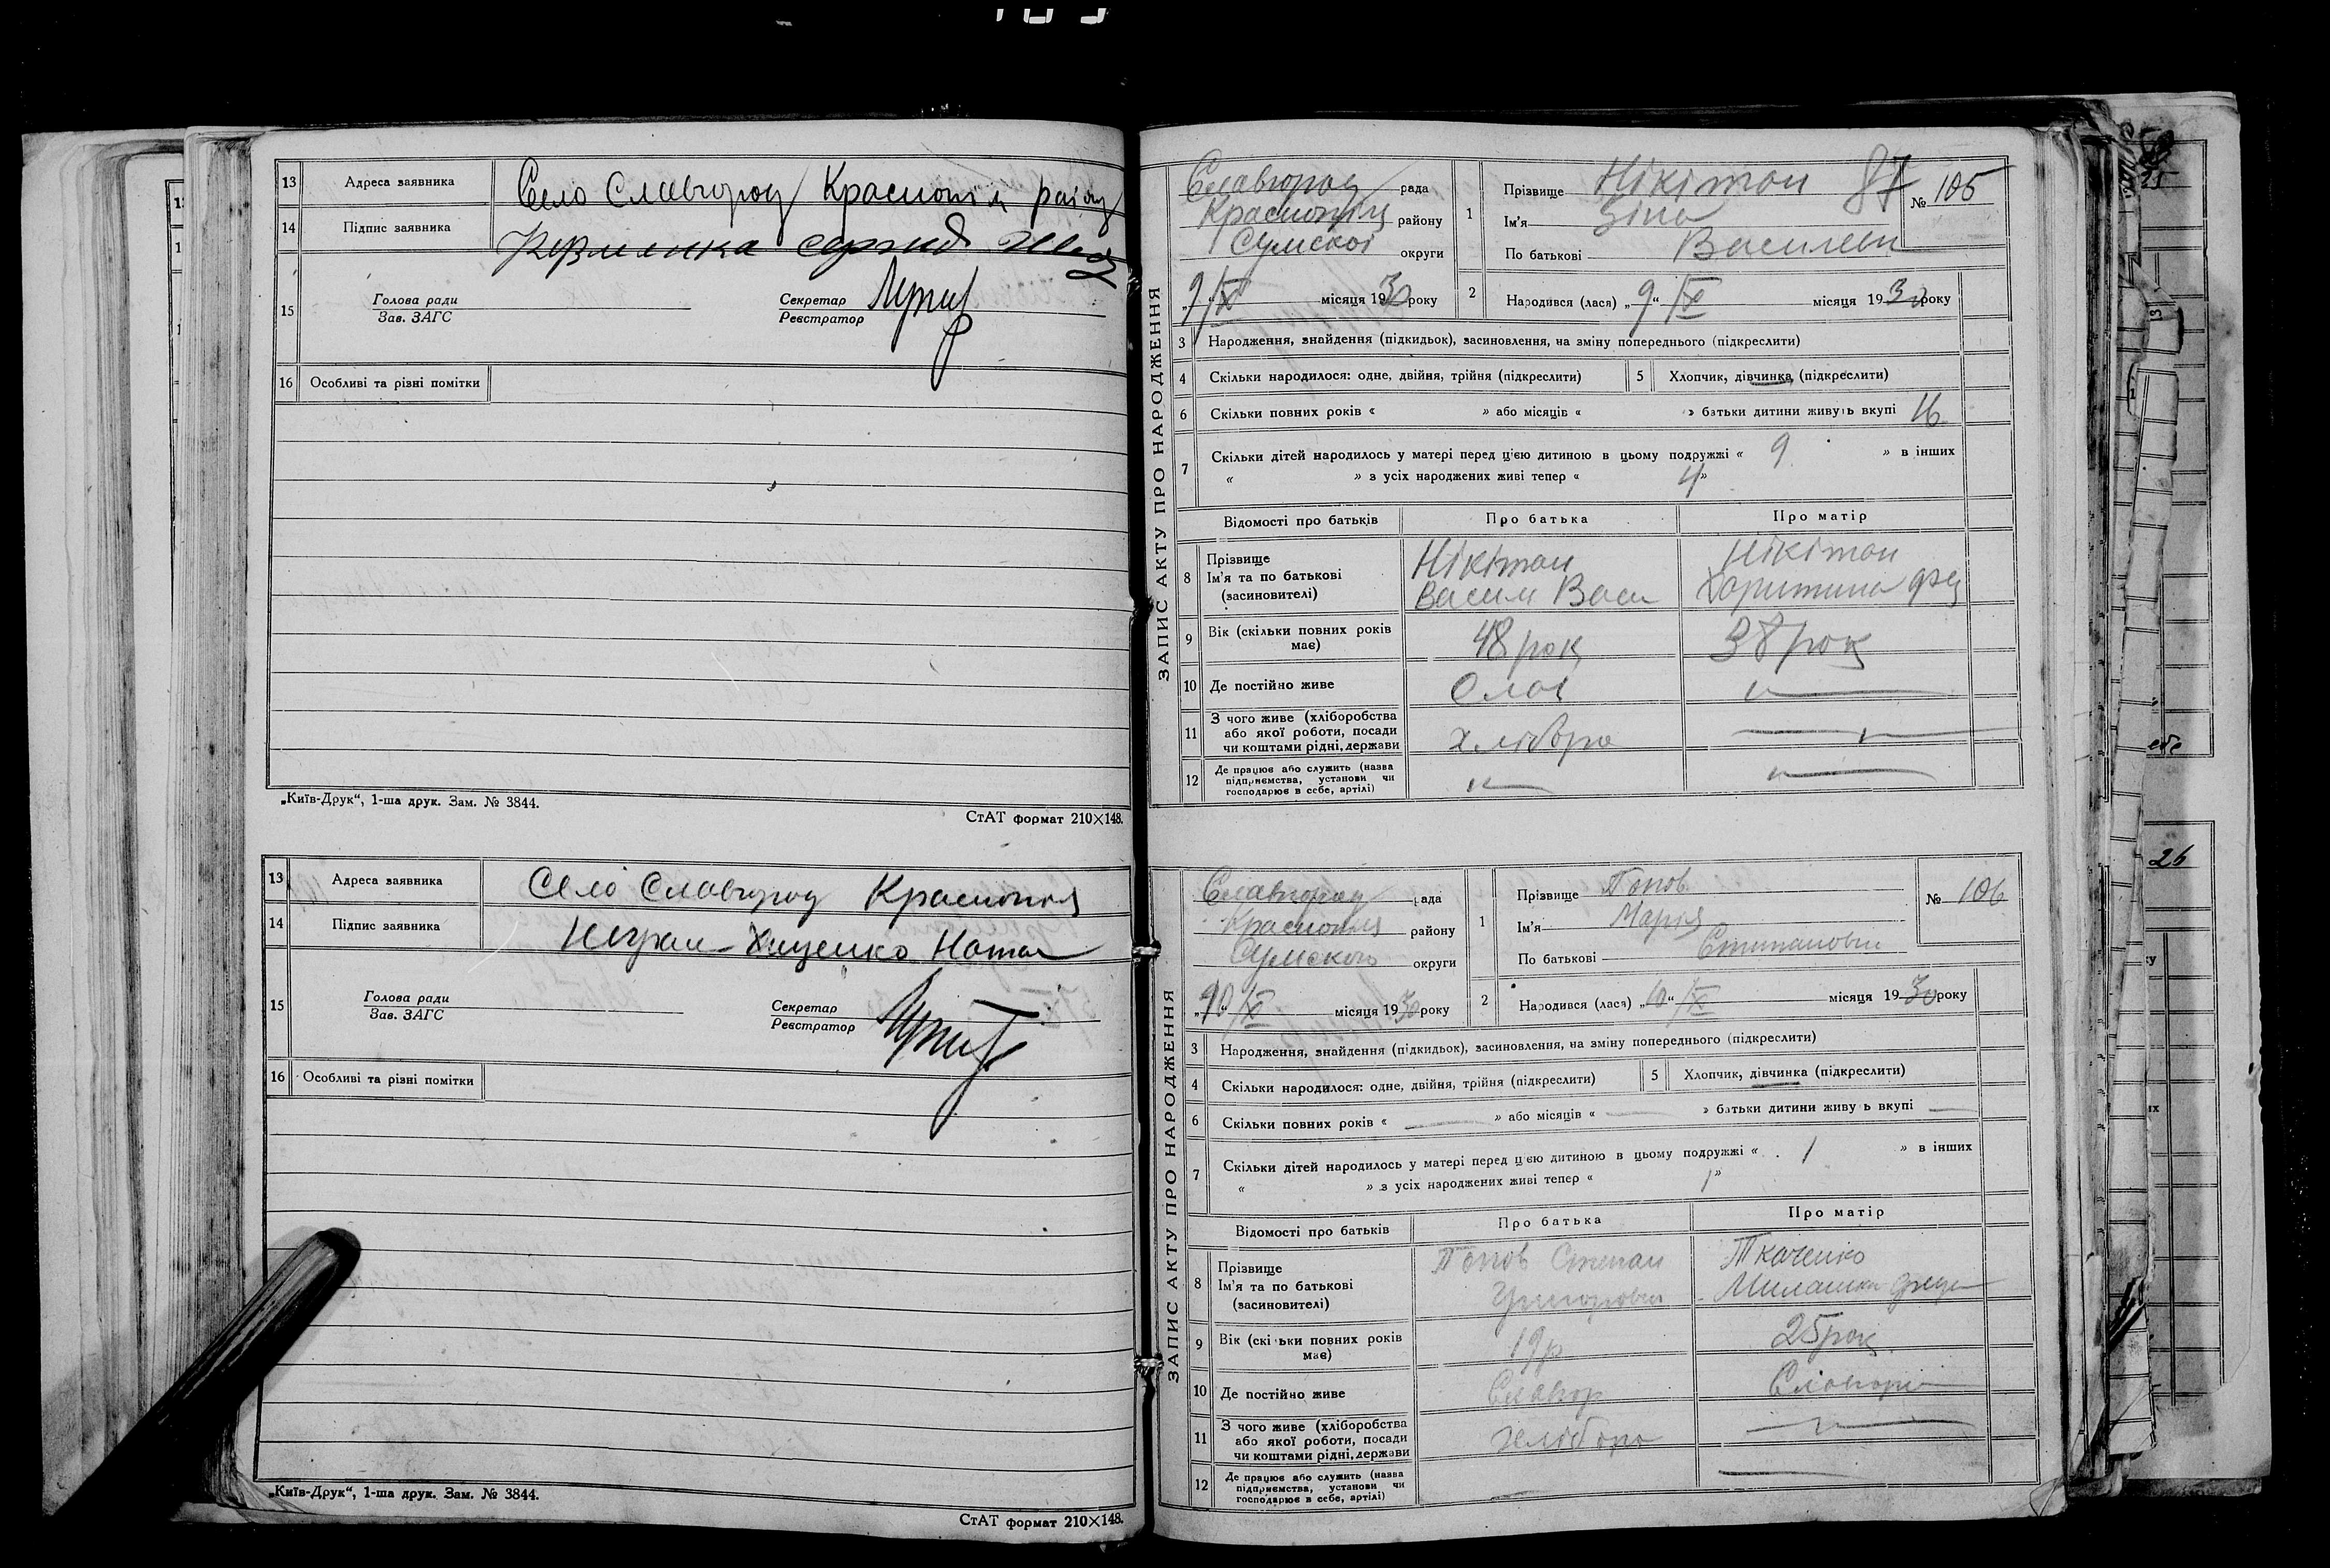 13 Адреса заявника Село Славгород Краснопіл району
14 Підпис заявника
15 Голова ради Секретар
Зав. ЗАГС Реєстратор
16 Особливі та різні помітки
„Київ-Друк“, 1-ша друк. Зам. № 3844.
СтАТ формат 210×148.
13 Адреса заявника Село Славгород Краснопіл
14 Підпис заявника
15 Голова ради Секретар
Зав. ЗАГС Реєстратор
16 Особливі та різні помітки
„Київ-Друк“, 1-ша друк. Зам. № 3844.
СтАТ формат 210×148.
ЗАПИС АКТУ ПРО НАРОДЖЕННЯ
Славгород рада
Краснопіл району
Сумської округи
9/IX місяця 1930 року
1 Прізвище Нікітан 87 № 105
Ім'я Зіна
По батькові Василевн
2 Народився (лася) „9“ IX місяця 1930 року
3 Народження, знайдення (підкидьок), засиновлення, на зміну попереднього (підкреслити)
4 Скільки народилося: одне, двійня, трійня (підкреслити) 5 Хлопчик, дівчинка (підкреслити)
6 Скільки повних років « » або місяців « » батьки дитини живуть вкупі 16
7 Скільки дітей народилось у матері перед цією дитиною в цьому подружжі « 9 » в інших
« » з усіх народжених живі тепер « 4 »
Відомості про батьків Про батька Про матір
8 Прізвище Нікітан Нікітан
Ім'я та по батькові Васил Васи Харитина Фед
(засновителі)
9 Вік (скільки повних років має) 48 рок 38 рок
10 Де постійно живе Слав
11 З чого живе (хліборобства
або якої роботи, посади
чи коштами рідні, держави Хлібороб
12 Де працює або служить (назва
підприємства, установи чи
господарює в себе, артілі)
ЗАПИС АКТУ ПРО НАРОДЖЕННЯ
Славгород рада
Краснопіл району
Сумского округи
10/IX місяця 1930 року
1 Прізвище Попов № 106
Ім'я Марія
По батькові Степановн
2 Народився (лася) „10“ IX місяця 1930 року
3 Народження, знайдення (підкидьок), засиновлення, на зміну попереднього (підкреслити)
4 Скільки народилося: одне, двійня, трійня (підкреслити) 5 Хлопчик, дівчинка (підкреслити)
6 Скільки повних років « » або місяців « » батьки дитини живу ь вкупі
7 Скільки дітей народилось у матері перед цією дитиною в цьому подружжі « 1 » в інших
« » з усіх народжених живі тепер « 1 »
Відомості про батьків Про батька Про матір
8 Прізвище Попов Степан Ткаченко
Ім'я та по батькові Григорович Милашка Феде
(засиновителі)
9 Вік (скі ьки повних років має) 19 р 25 рок
10 Де постійно живе Славгор Славгор
11 З чого живе (хліборобства
або якої роботи, посади
чи коштами рідні, держави Хлібороб
12 Де працює або служить (назва
підприємства, установи чи
господарює в себе, артілі)